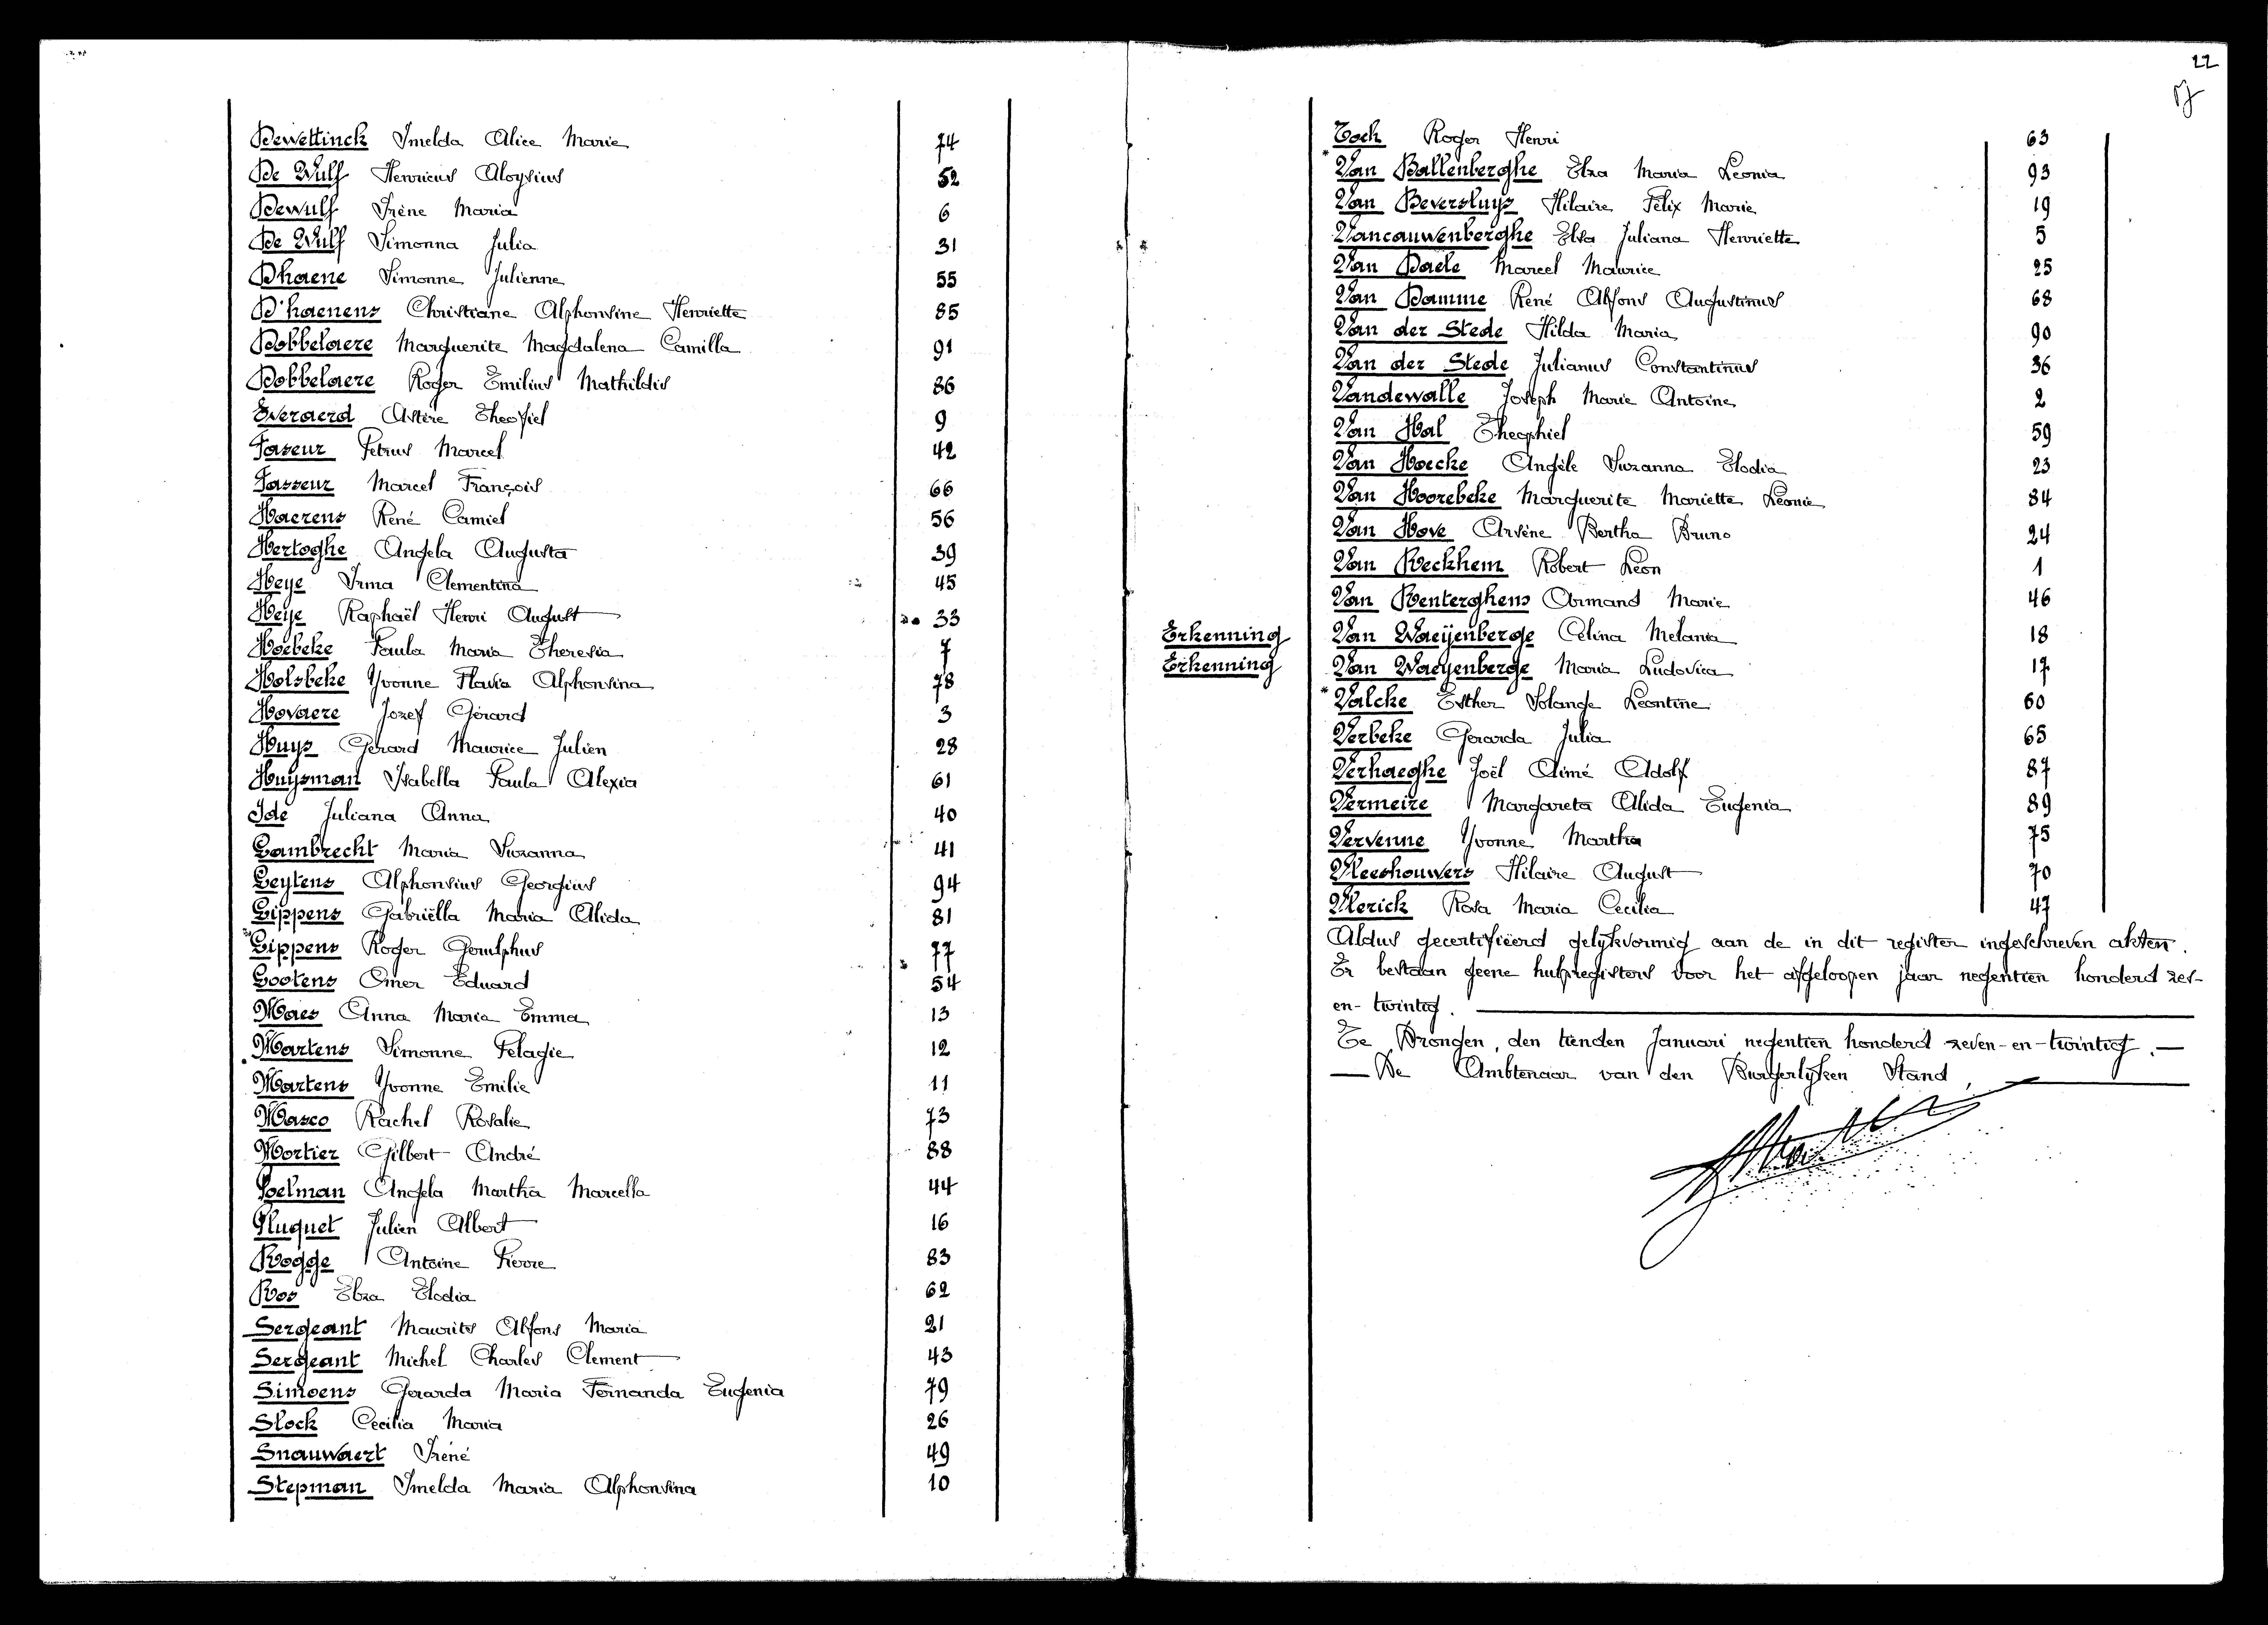 Dewettinck Imelda Alice Marie 74
De Wulf Henricus Aloysius 52
Dewulf Irène Maria 6
De Wulf Simonna Julia 31
Dhaene Simonne Julienne 55
D'haenens Christiane Alphonsine Henriette 85
Dobbelaere Marguerite Magdalena Camilla 91
Dobbelaere Roger Emilius Mathildis 86
Everaerd Astère Theofiel 9
Faseur Petrus Marcel 42
Fasseur Marcel François 66
Haerens René Camiel 56
Hertoghe Angela Augusta 39
Heye Irma Clementina 45
Heye Raphaël Henri August 33
Hoebeke Paula Maria Theresia 7
Holsbeke Yvonne Flavia Alphonsina 78
Hovaere Jozef Gérard 3
Huys Gérard Maurice Julien 28
Huysman Isabella Paula Alexia 61
Ide Juliana Anna 40
Lambrecht Maria Suzanna 41
Leytens Alphonsius Georgius 94
Lippens Gabriëlla Maria Alida 81
Lippens Roger Gerulphus 77
Lootens Omer Eduard 54
Maes Anna Maria Emma 13
Martens Simonne Pelagie 12
Martens Yvonne Emilie 11
Masco Rachel Rosalie 73
Mortier Gilbert André 88
Poelman Angela Martha Marcella 44
Pluquet Julien Albert 16
Rogge Antoine Pierre 83
Ros Elza Elodia 62
Sergeant Maurits Alfons Maria 21
Sergeant Michel Charles Clement 43
Simoens Gerarda Maria Fernanda Eugenia 79
Slock Cecilia Maria 26
Snauwaert Iréné 49
Stepman Imelda Maria Alphonsina 10
22
Tock Roger Henri 63
Van Ballenberghe Elza Maria Leonia 93
Van Beversluys Hilaire Félix Marie 19
Vancauwenberghe Elsa Juliana Henriette 5
Van Daele Marcel Maurice 25
Van Damme René Alfons Augustinus 68
Van der Stede Hilda Maria 90
Van der Stede Julianus Constantinus 36
Vandewalle Joseph Marie Antoine 2
Van Hal Theophiel 59
Van Hoecke Angèle Suzanna Elodia 23
Van Hoorebeke Marguerite Mariette Léonie 84
Van Hove Arsène Bertha Bruno 24
Van Reckhem Robert Léon 1
Van Renterghem Armand Marie 46
Erkenning Van Waeÿenberge Célina Melania 18
Erkenning Van Waeyenberge Maria Ludovica 17
Valcke Esther Solange Leontine 60
Verbeke Gerarda Julia 65
Verhaeghe Joël Aimé Adolf 87
Vermeire Margareta Alida Eugenia 89
Vervenne Yvonne Martha 75
Vleeshouwers Hilaire August 70
Vlerick Rosa Maria Cecilia 47
Aldus gecertifiëerd gelijkvormig aan de in dit register ingeschreven akten.
Er bestaan geene hulpregisters voor het afgeloopen jaar negentien honderd zes-
en-twintig.
Te Drongen, den tienden Januari negentien honderd zeven-en-twintig.
De Ambtenaar van den Burgerlijken Stand,